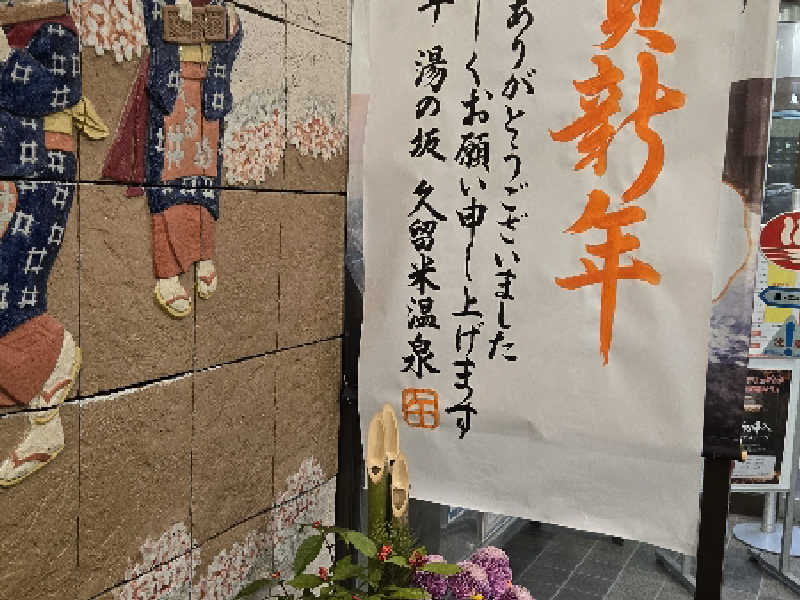 賀新年
ありがとうございました
しくお願い申し上げます
年 湯の坂 久留米温泉